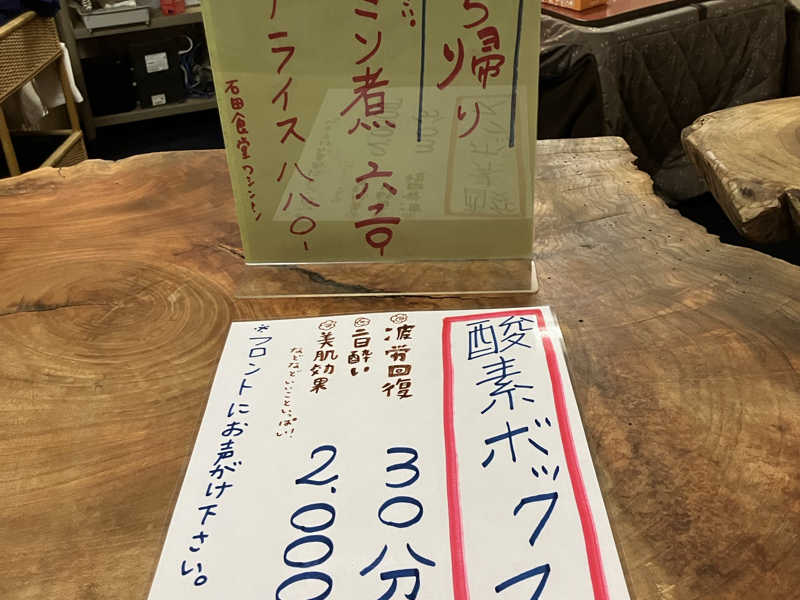 ち帰り
ミソ煮 六二〇
ライス 八八〇-
石田食堂ワシントン
酸素ボックス
30分
2,000
疲労回復
二日酔い
美肌効果
などなどいいこといっぱい!
※フロントにお声がけ下さい。